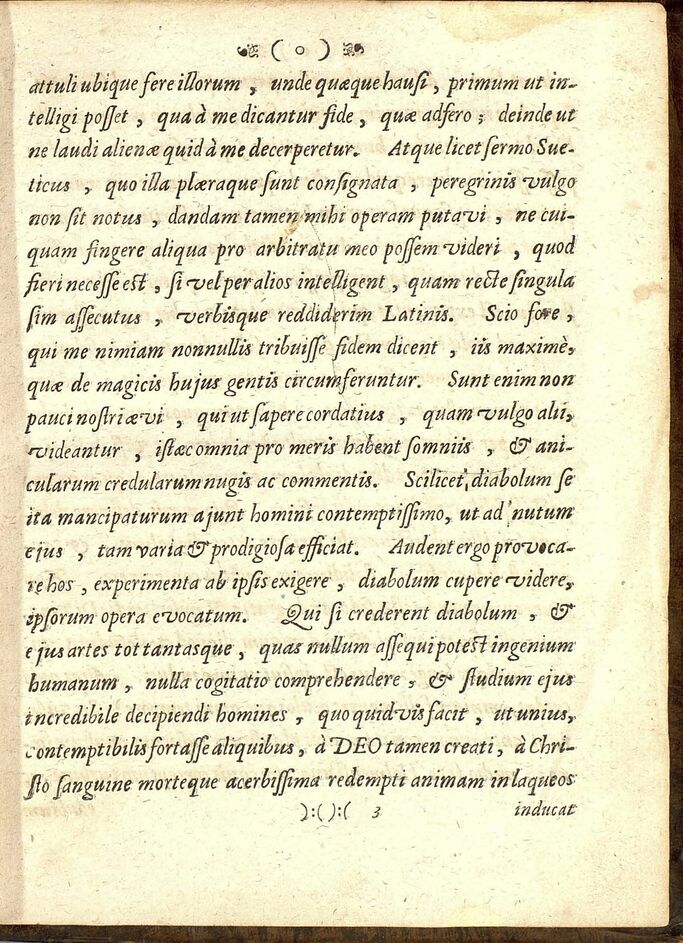 ( o )
attuli ubique fere illorum , unde quæque hausi, primum ut in-
telligi posset , qua à me dicantur fide , quæ adfero ; deinde ut
ne laudi alienæ quid à me decerperetur. Atque licet sermo Sue-
ticus , quo illa plæraque sunt consignata , peregrinis vulgo
non sit notus , dandam tamen mihi operam putavi , ne cui-
quam fingere aliqua pro arbitratu meo possem videri , quod
fieri necesse est , si vel per alios intelligent , quam recte singula
sim assecutus , verbisque reddiderim Latinis. Scio fore ,
qui me nimiam nonnullis tribuisse fidem dicent , iis maximè,
quæ de magicis hujus gentis circumferuntur. Sunt enim non
pauci nostri ævi , qui ut sapere cordatius , quam vulgo alii,
videantur , istæc omnia pro meris habent somniis , & ani-
cularum credularum nugis ac commentis. Scilicet, diabolum se
ita mancipaturum ajunt homini contemptissimo, ut ad nutum
ejus , tam varia & prodigiosa efficiat. Audent ergo provoca-
re hos , experimenta ab ipsis exigere , diabolum cupere videre,
ipsorum opera evocatum. Qui si crederent diabolum , &
ejus artes tot tantasque , quas nullum assequi potest ingenium
humanum , nulla cogitatio comprehendere , & studium ejus
incredibile decipiendi homines , quo quid vis facit , ut unius,
contemptibilis fortasse aliquibus , à DEO tamen creati , à Chri-
sto sanguine morteque acerbissima redempti animam in laqueos
):( ):( 3 inducat